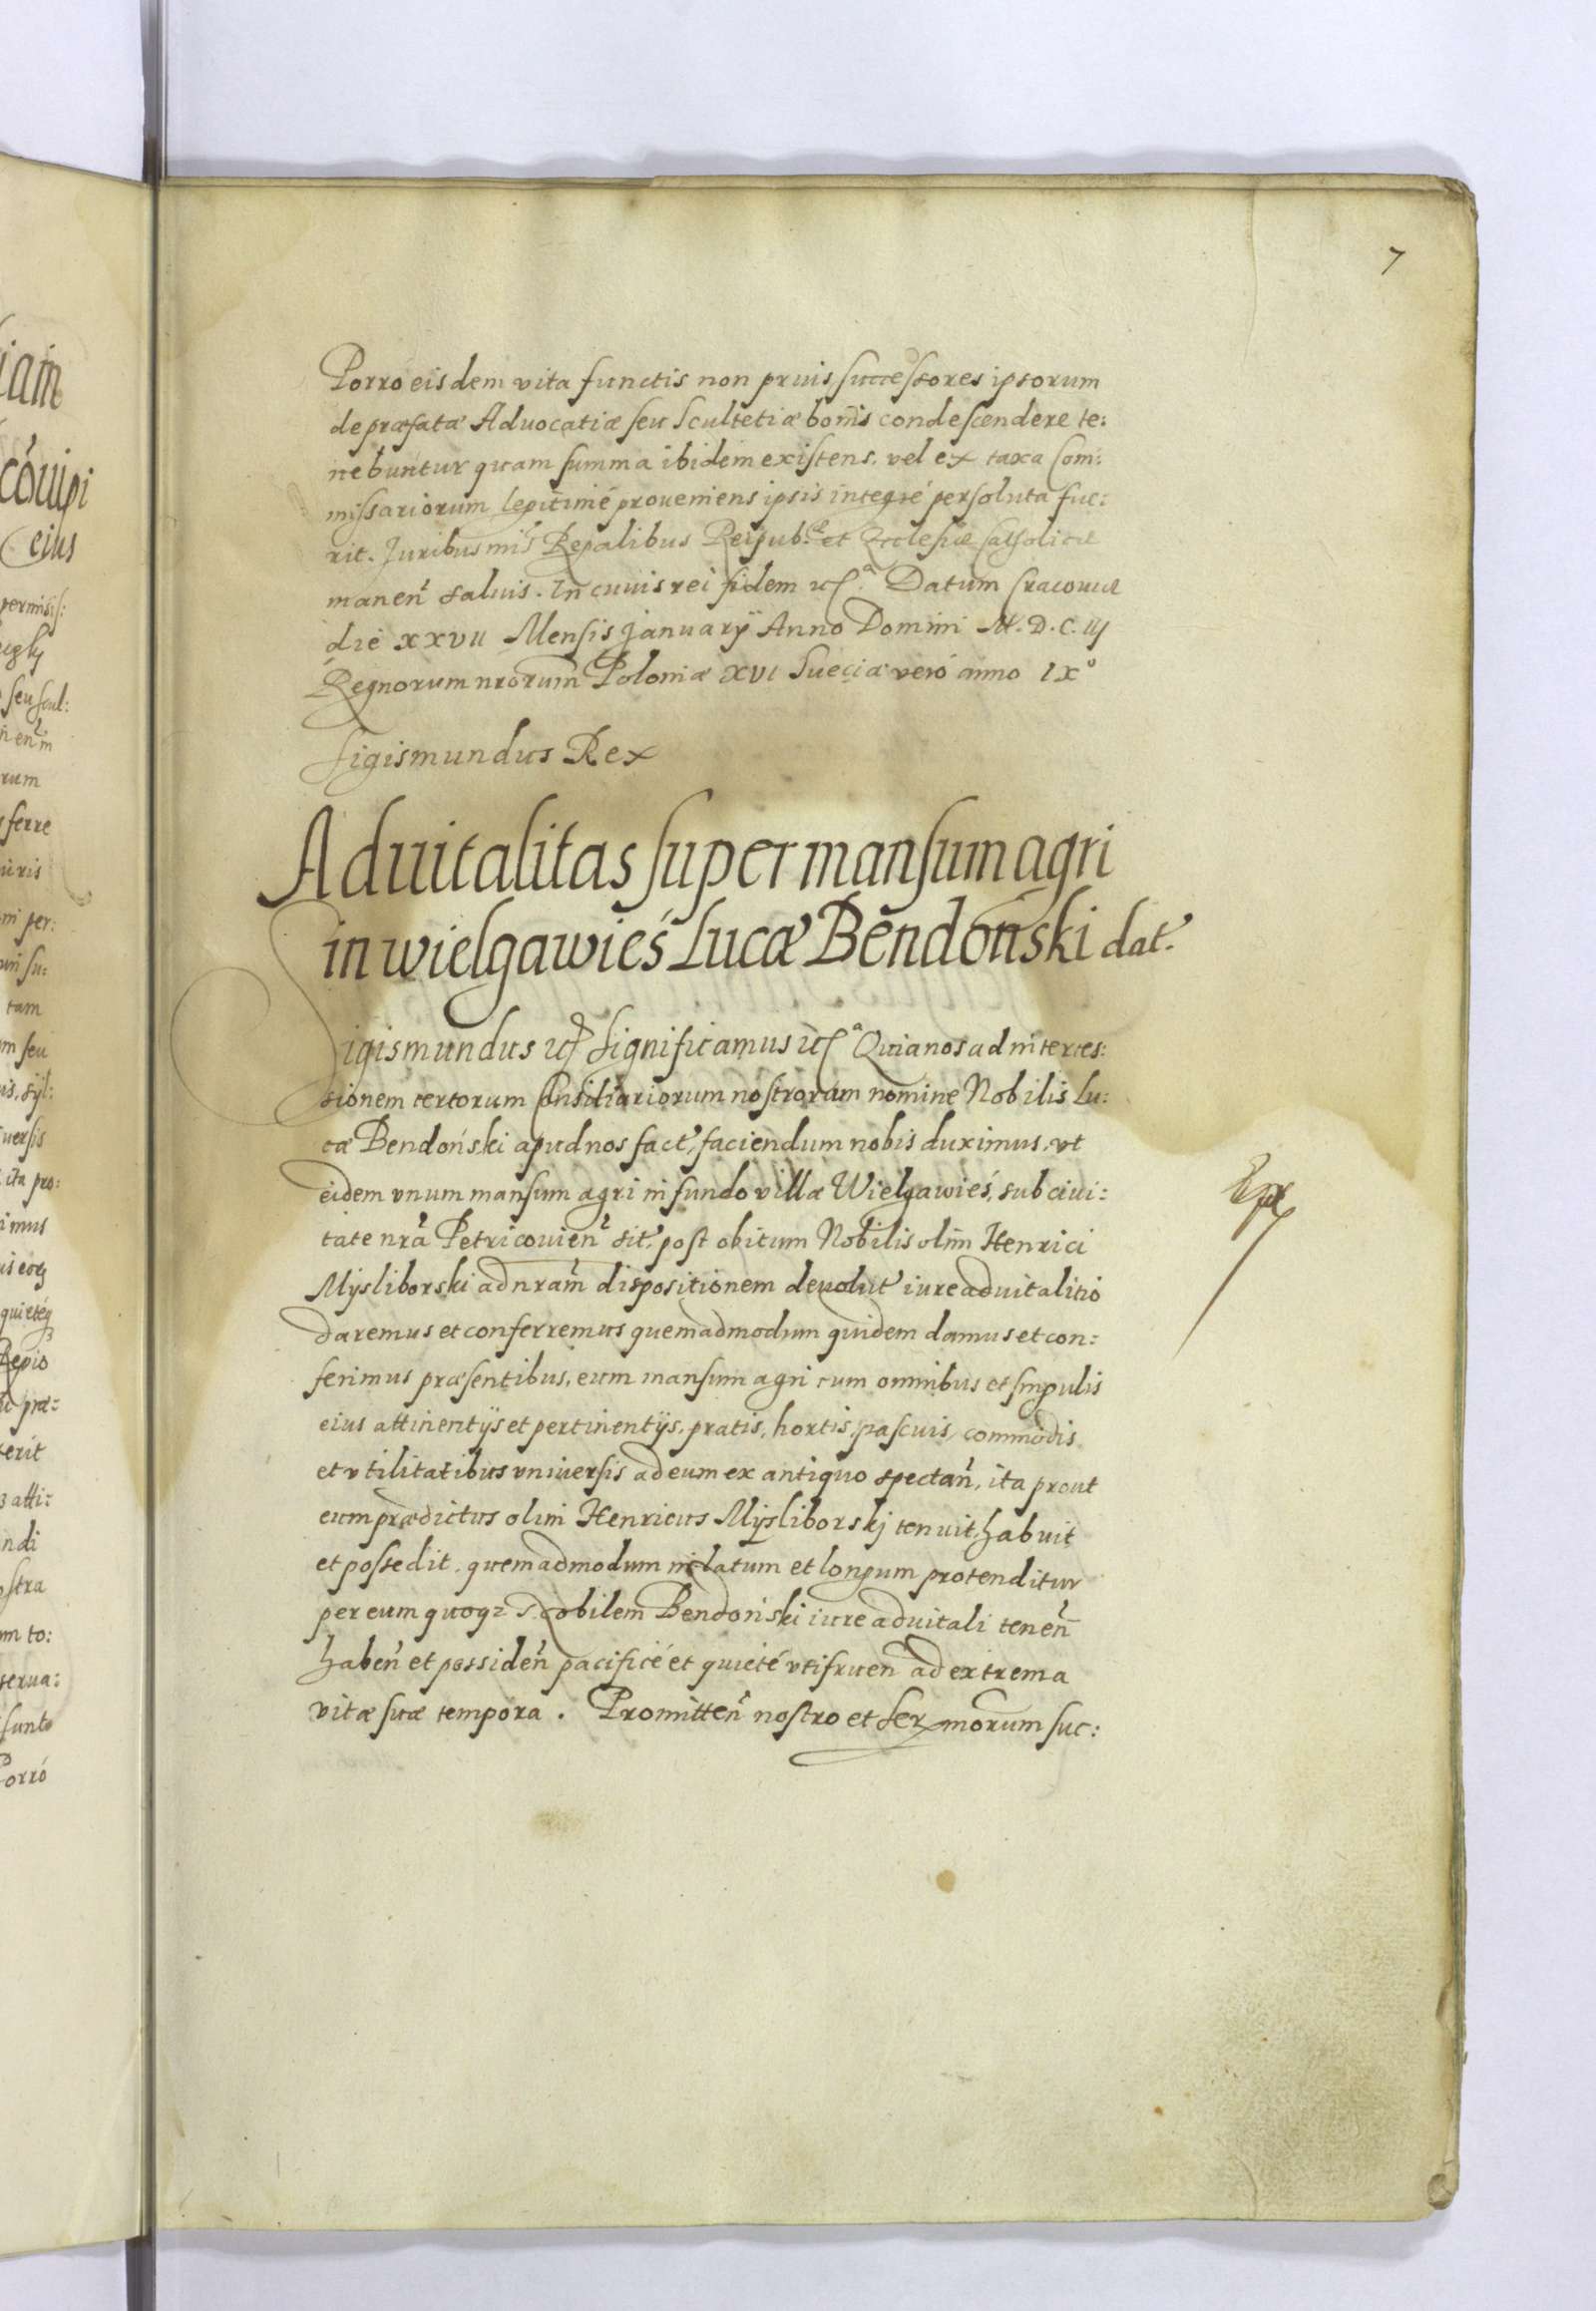 7
Porró eisdem vita functis non prius successores ipsorum
de præfatæ Advocatiæ seu Scultetiæ bonis condescendere te:
nebuntur quam summa ibidem existens, vel ex taxa Com:
missariorum legitimé proveniens ipsis integré persoluta fue:
rit. Juribus nr̃is Regalibus Reipub:æ et Ecclesiæ Catholicæ
maneñ salvis. In cuius rei fidem etc.ª Datum Cracoviæ
die XXVII Mensis Januarÿ Anno Domini M.D.C.IIJ
Regnorum nrorum̃ Poloniæ XVI Sueciæ veró anno IXº
Sigismundus Rex
Advitalitas super mansum agri
in Wielgawieś Lucæ Bendoński dat.
Sigismundus etc. Significamus etc.ª Quia nos ad interces:
sionem certorum Consiliariorum nostrorum nomine Nobilis Lu:
cæ Bendoński apud nos fact, faciendum nobis duximus, vt
eidem vnum mansum agri in fundo villæ Wielgawieś, sub civi:
tate nrã Petricovieñ sit, post obitum Nobilis olim Henrici
Mysliborski ad nram̃ dispositionem devolut iure advitalitio
daremus et conferremus quemadmodum quidem damus et con:
ferimus præsentibus, eum mansum agri cum omnibus et singulis
eius attinentÿs et pertinentÿs, pratis, hortis, pascuis, commodis
et vtilitatibus vniversis ad eum ex antiquo spectañ, ita prout
eum prædictus olim Henricus Mysliborskj tenuit, habuit
et possedit, quemadmodum in latum et longum protenditur
per eum quoqz Nobilem Bendoński iure advitali teneñ
habeñ et possideñ pacificé et quieté vtifrueñ ad extrema
vitæ suæ tempora. Promitteñ nostro et Ser̃morum suc:
iam
eius
rum
ferre
tam
imus
Regio
terit
ndi
ostra
Porró